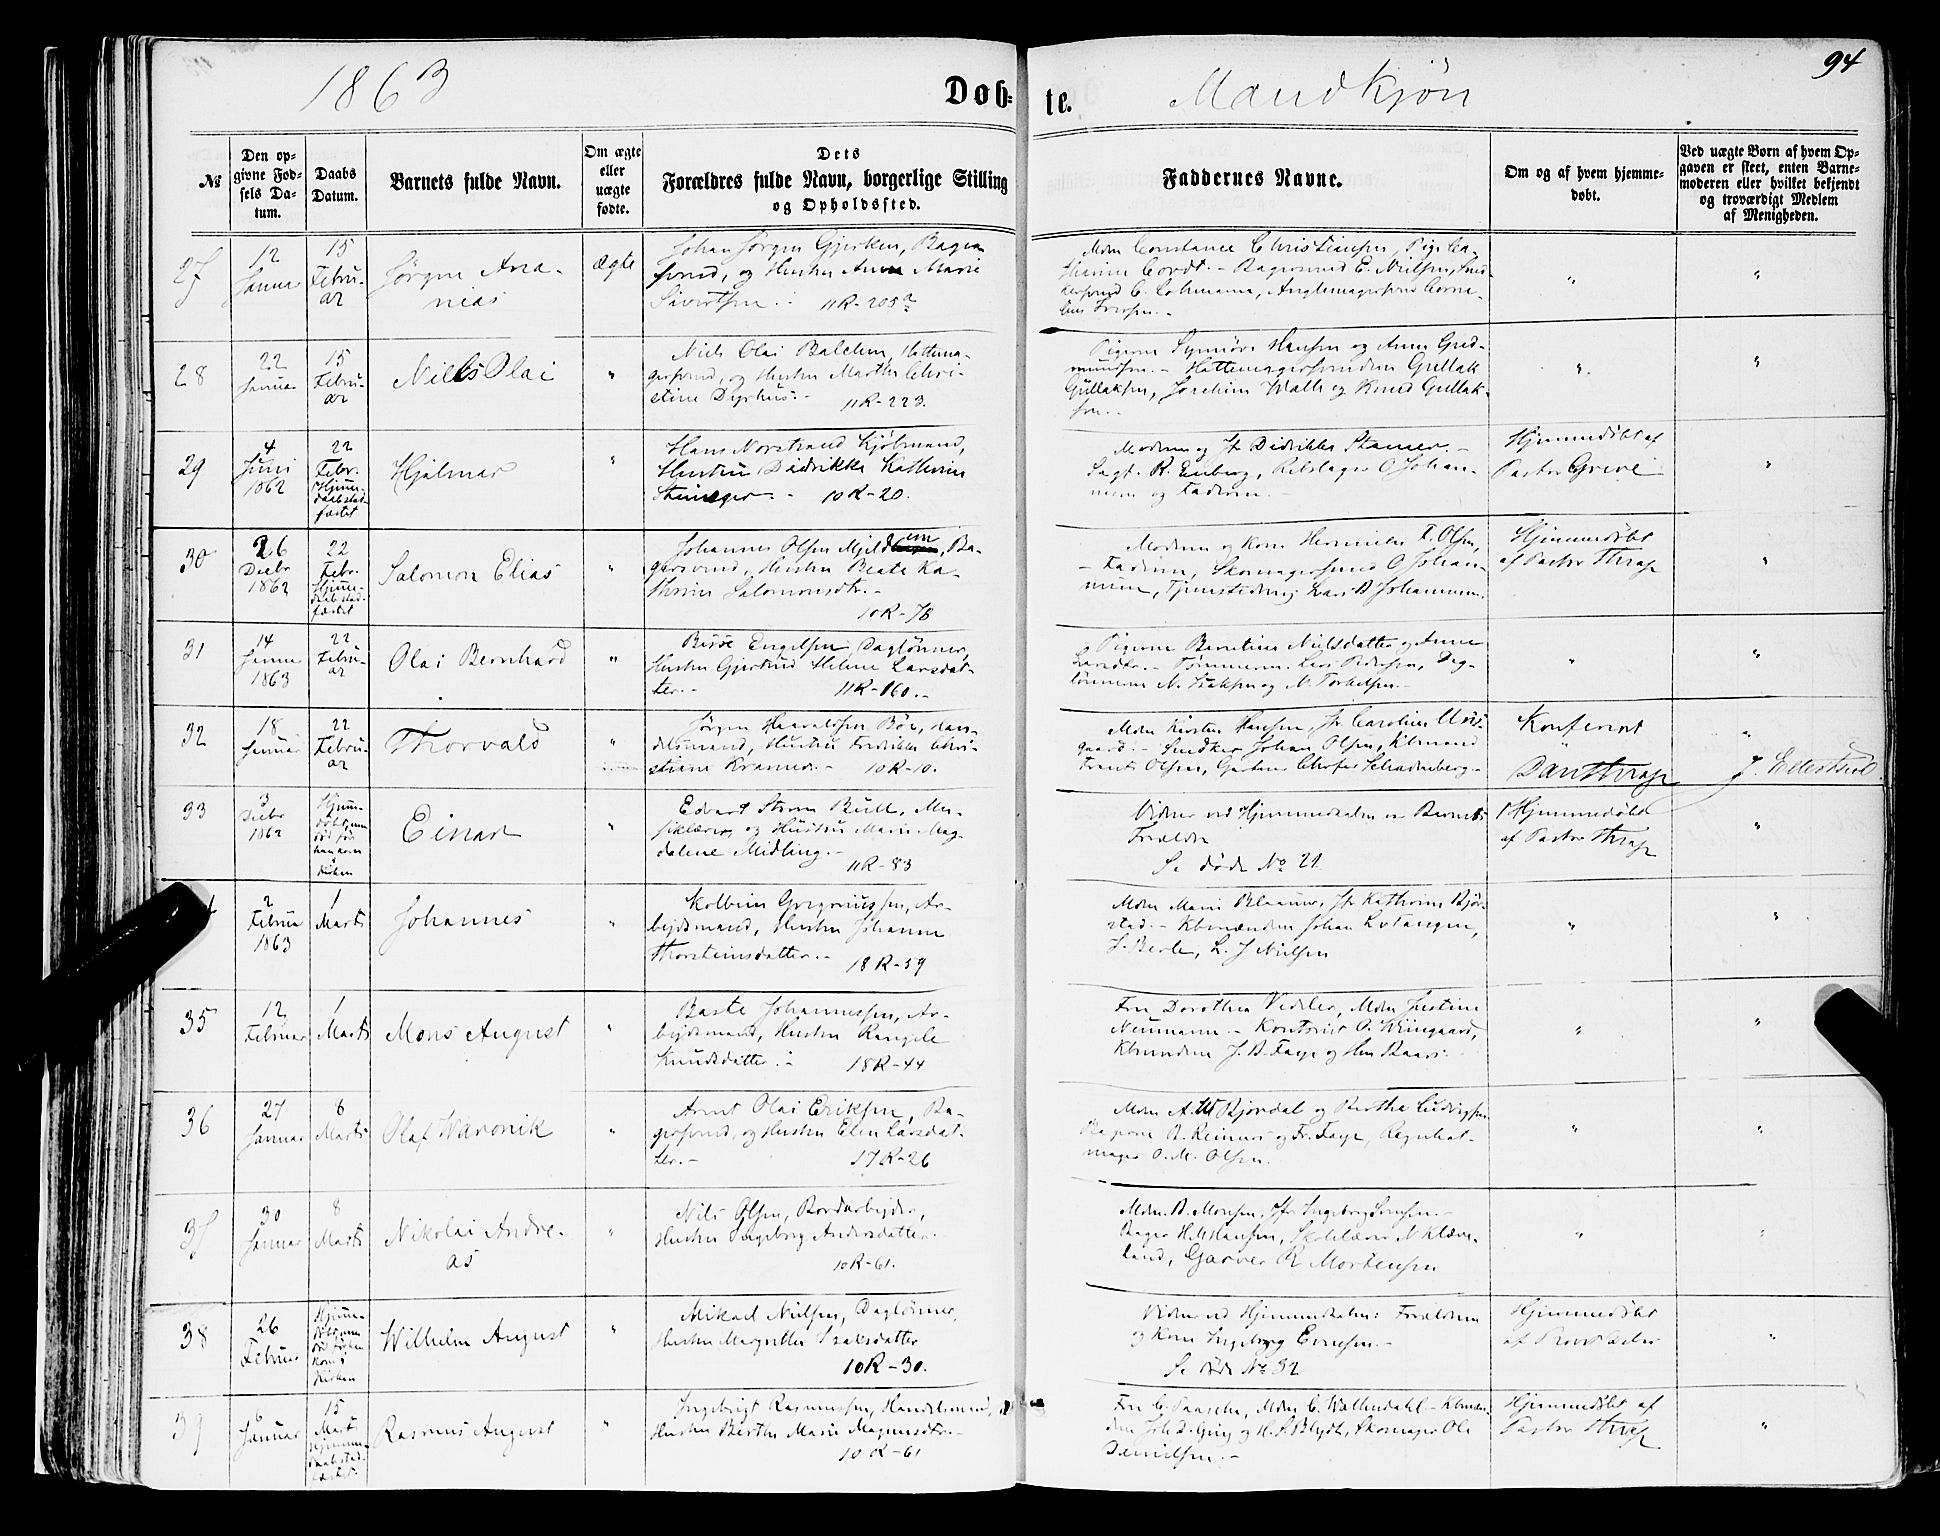 1863
Døb=
te.
Mandkjøn
94
№
Den op=
givne Fød=
sels Da=
tum.
Daabs
Datum.
Barnets fulde Navn.
Om ægte
eller
uægte
fødte.
Dets
Forældres fulde Navn, borgerlige Stilling
og Opholdssted.
Faddernes Navne.
Om og af hvem hjemme=
døbt.
Ved uægte Børn af hvem Op=
gaven er skeet, enten Barne=
moderen eller hvilket bekjendt
og troværdigt Medlem
af Menigheden.
27
12
Januar
15
Febru-
ar
Jørgen Ana-
nias
ægte
Johan Jørgen Gjerken, Bager-
svend, og Hustru Anne Marie
Sivertsen.
11R-205a
Mdm Constance Christiansen, Pige Ca-
thrine Cordt.- Bagersvend E. Nielsen, Sned-
kersvend C. Lohmann,
28
22
Januar
15
Febru-
ar
Niels Olai
"
Niels Olai Balchen, Hattema-
gersvend, og Hustru Marthe Chri-
stine Dyrhus.-
11R-223.
Pigerne Synnøve Hansen og Anne Gud-
mundsen.- Hattemagersvendene Gullak
Gullaksen, Joachim Wall og Knud Gullak-
sen.-
"
"
29
4
Juni
1862
22
Febr.
Hjem-
daab stad-
fæstet
Hjalmar
"
Hans Norstrand Kjøbmand,
Hustru Didrikke Kathrine
10R-20.
Moderen og Jfr Didrikke
Sagf. R. Enberg, Rebslager O Johan-
nesen og Faderen.-
Hjemmedøbt af
Pastor Greve
"
30
26
Decbr
1862
22
Febr.
Hjem-
daab stad-
fæstet
Salomon Elias
"
Johannes Olsen Ba-
gersvend, Hustru Beate Ka-
thrine Salomonsdtr.-
10R-78
Moderen og Kone Henriette T. Olsen,
- Faderen, Skomagersvend O Johan-
nesen, Tjenestedreng Lars B Johannesen.
Hjemmedøbt
af Pastor Thrap
"
31
14
Januar
1863
22
Febru-
ar
Olai Bernhard
"
Engelsen, Dagløner,
Hustru Gjertrud Helene Larsdat-
ter.-
11R-160.-
Pigerne Berntine Nielsdatter og Anne
Larsdtr.- Tømmerm. Lars Pedersen, Dag-
lønnerne N. Isaksen og N. Torkelsen.-
"
"
32
18
Januar
22
Febru-
ar
Thorvald
"
Jørgen Haavaldsen Bøe, Han-
delsmand, Hustru Fredrikke Chri-
stiane Kramer.-
10R-10.
Mdm Kirsten Hansen, Jfr Caroline
gaard.- Snedker Johan Olsen, Kbmand
Frants Olsen, Gartner
Konfereret
Dan Thrap
"
33
3
Decbr
1862
Einar
"
Edvard Storm Bull, Mu-
siklærer, og Hustru Marie Mag-
dalene Midling.-
11R-83
Vidner ved Hjemmedaaben er Barnets
Forældre
Se døde No 21.
Hjemmedøbt
af Pastor Thrap
"
2
Februar
1863
1
Marts
Johannes
"
Kolbein Gregoriussen, Ar-
beidsmand, Hustru Johanne
Thorsteinsdatter.-
18R-59
Mdm Marie Blaauw, Jfr Kathrine Bjør-
stad.- Kbmændene Johan Rotangen,
J. Berle, L. J Nielsen
"
"
35
12
Februar
1
Marts
Mons August
"
Baste Johannessen, Ar-
beidsmand, Hustru Rangele
Knudsdatter.-
18R-44
Fru Dorothea Vedeler, Mdm Justine
Neumann.- Kontorist O. Wiingaard,
Kbmændene J. B. Faye og
"
"
36
27
Januar
8
Marts
Olaf Waronik
"
Arnt Olai Eriksen, Ba-
gersvend, og Hustru Elen Larsdat-
ter.-
17R-26
Mdm A. W Bjordal og Bertha Ludvigsen.
Bagerne B. Reimers og Fr. Faye,
mager O. M. Olsen.
"
"
37
30
Januar
8
Marts
Nikolai Andre-
as
"
Nils Olsen, Bordarbeider,
Hustru Ingeborg Andersdatter.
10R-61.
Mdm. B. Monsen, Jfr Ingeborg
Bager H. M Hansen, Skolelærer N
land, Garver R Mortensen
"
"
38
26
Februar
Wilhelm August
"
Mikael Nielsen, Dagløner,
Hustru Margrethe Isaksdatter
10R-30.
Vidner ved Hjemmedaaben: Forældrene
og Kone Ingeborg Evensen.-
Se døde No 32
Hjemmedøbt
af
"
39
6
Januar
15
Marts
Hjemme-
daab stad-
fæstet.
Rasmus August
"
Ingebrigt Rasmussen, Handelsmand,
Hustru Berthe Marie Magnusdtr.-
10R-61
Fru C. Paasche, Mdm C. Wallendahl - Kbmæn-
dene Joh. D. Grieg og H. S. Blydt, Skomager Ole
Danielsen.-
Hjemmedøbt af
Pastor Thrap
"